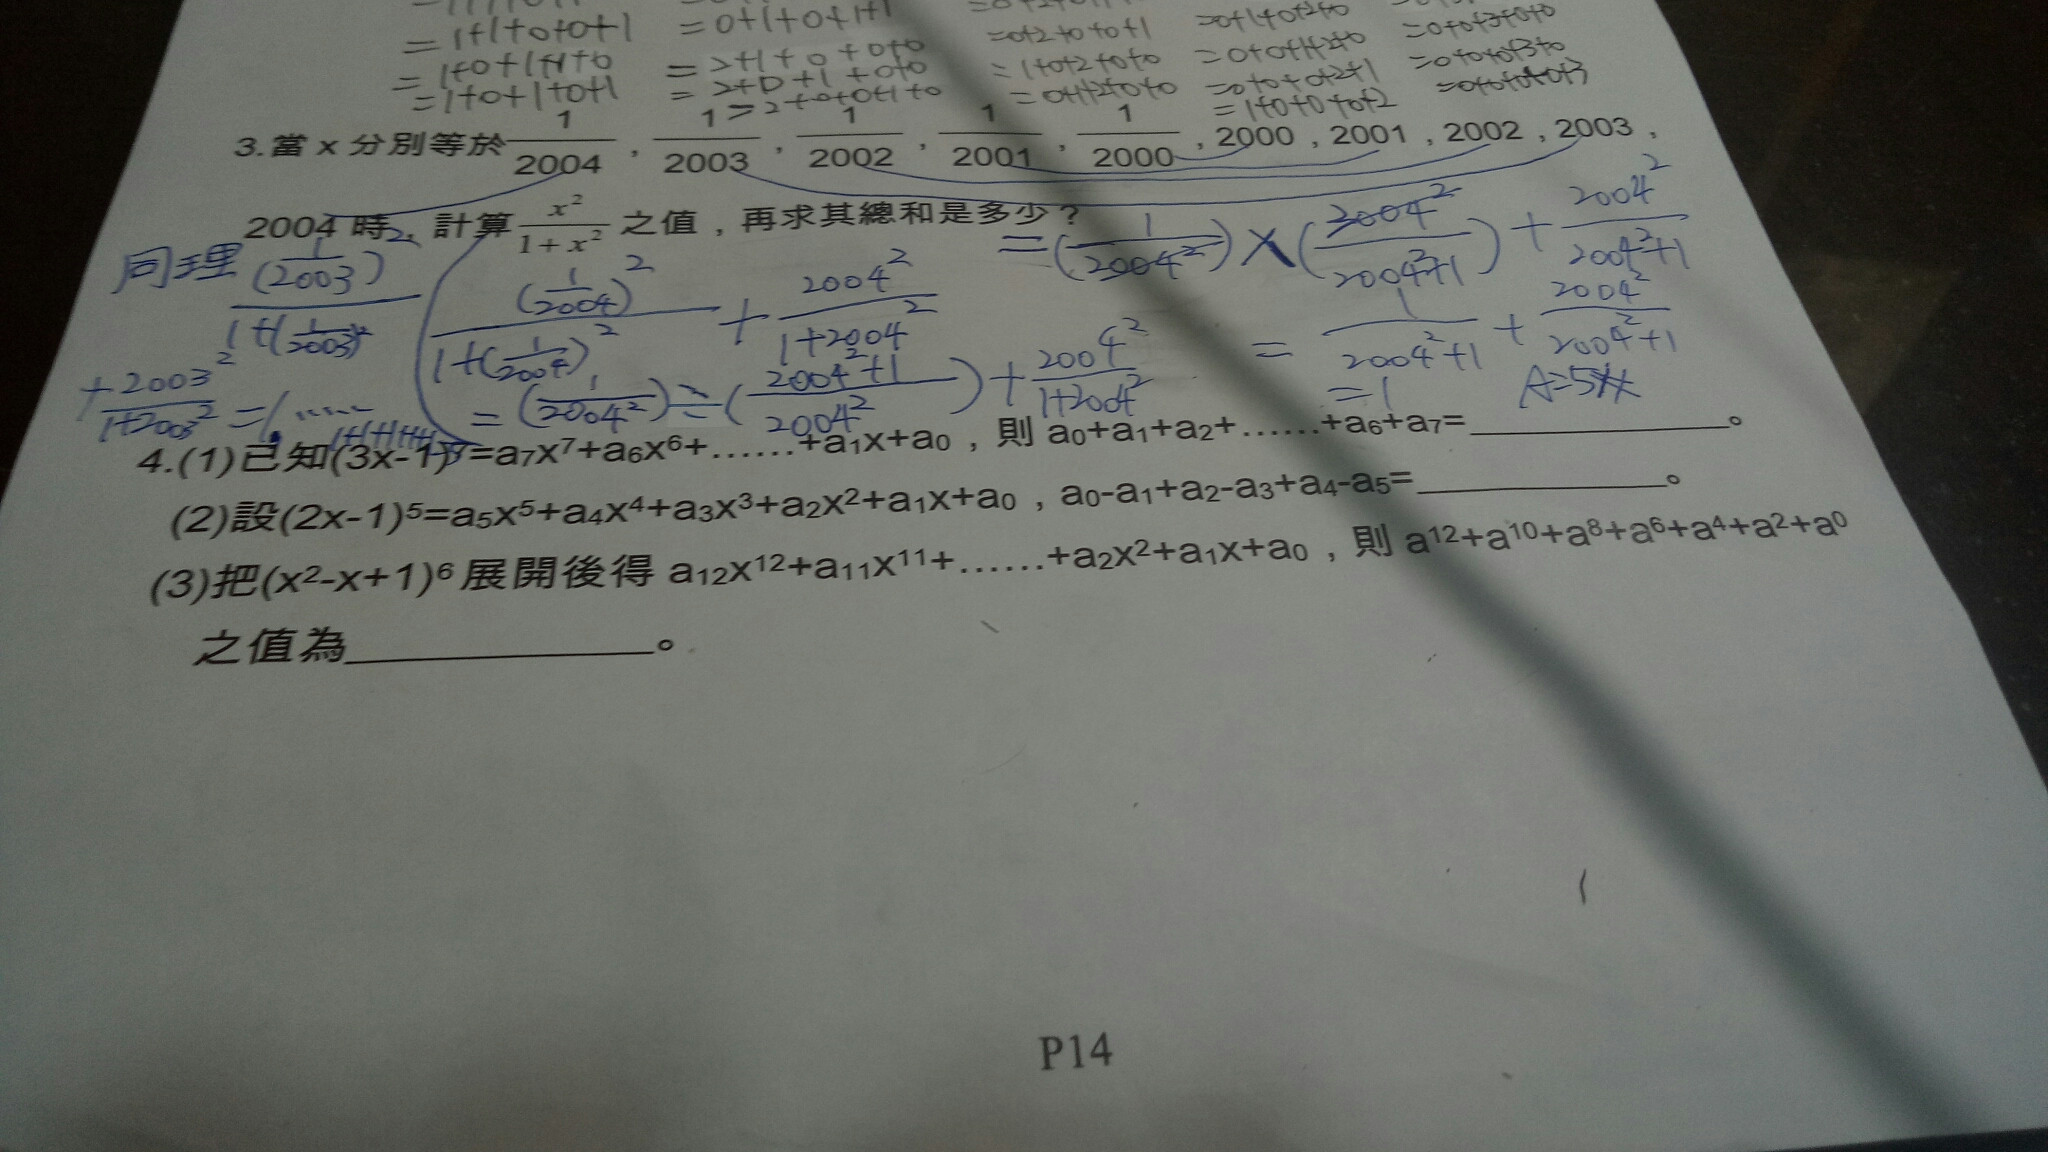 =1+1+0+0+1 =0+1+0+1+1 =0+2+0+0+1 =0+1+0+2+0 =0+0+3+0+0
=1+0+1+1+0 =2+1+0+0+0 =1+0+2+0+0 =0+0+1+2+0 =0+0+0+3+0
=1+0+1+0+1 =2+0+1+0+0 =0+1+2+0+0 =0+0+0+2+1 =0+0+0+0+3
=2+0+0+1+0 =1+0+0+0+2
3.當 x 分別等於 1/2004 , 1/2003 , 1/2002 , 1/2001 , 1/2000 , 2000 , 2001 , 2002 , 2003 ,
2004 時,計算 x²/(1+x²) 之值,再求其總和是多少?
=(1/2004²)×(2004²/(2004²+1))+2004²/(2004²+1)
同理 (1/2003)²/(1+(1/2003)²) (1/2004)²/(1+(1/2004)²)+2004²/(1+2004²)
=1/(2004²+1)+2004²/(2004²+1)
+2003²/(1+2003²)=1, …… =(1/2004²)÷((2004²+1)/2004²)+2004²/(1+2004²)
=1 A=5
1+1+1+1+1=5
4.(1)已知(3x-1)⁷=a₇x⁷+a₆x⁶+……+a₁x+a₀,則 a₀+a₁+a₂+……+a₆+a₇=__________。
(2)設(2x-1)⁵=a₅x⁵+a₄x⁴+a₃x³+a₂x²+a₁x+a₀,a₀-a₁+a₂-a₃+a₄-a₅=__________。
(3)把(x²-x+1)⁶展開後得 a₁₂x¹²+a₁₁x¹¹+……+a₂x²+a₁x+a₀,則 a¹²+a¹⁰+a⁸+a⁶+a⁴+a²+a⁰
之值為____________。
P14